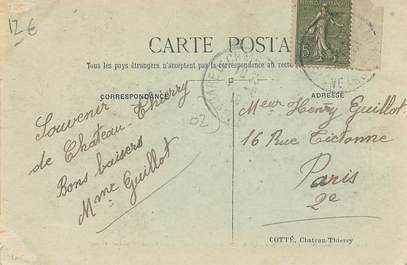 12 €
CARTE POSTA
Tous les pays étrangers n'acceptent pas la correspondance au recto
CORRESPONDANCE
ADRESSE
Souvenir
de Chateau-Thierry
Bons baisers
Mme Guillot
02
Mr Henry Guillot
16 Rue Tictonne
Paris
2e
COTTÉ, Chateau-Thierry